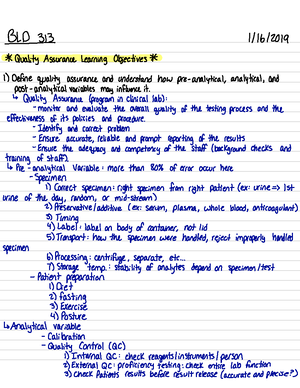 BLD 313 1/16/2019
* Quality Assurance Learning Objectives *
1) Define quality assurance and understand how pre-analytical, analytical, and
post-analytical variables may influence it.
↳ Quality Assurance (program in clinical lab):
- monitor and evaluate the overall quality of the testing process and the
effectiveness of its policies and procedure.
- Identify and correct problem
- Ensure accurate, reliable and prompt reporting of the results
- Ensure the adequacy and competency of the staff (background checks and
training of staff).
↳ Pre-analytical Variable: more than 80% of error occur here
- Specimen
1) Correct specimen: right specimen from right patient (ex: urine ⇒ 1st
urine of the day, random, or mid-stream)
2) Preservative/additive (ex: serum, plasma, whole blood, anticoagulant)
3) Timing
4) Label: label on body of container, not lid
5) Transport: how the specimen were handled, reject improperly handled
specimen
6) Processing: centrifuge, separate, etc...
7) Storage temp.: stability of analytes depend on specimen/test
- Patient preparation
1) Diet
2) Fasting
3) Exercise
4) Posture
↳ Analytical variable
- Calibration
- Quality Control (QC)
1) Internal QC: check reagents/instruments/person
2) External QC: proficiency testing: check entire lab function
3) Check patients results before result release (accurate and precise?)